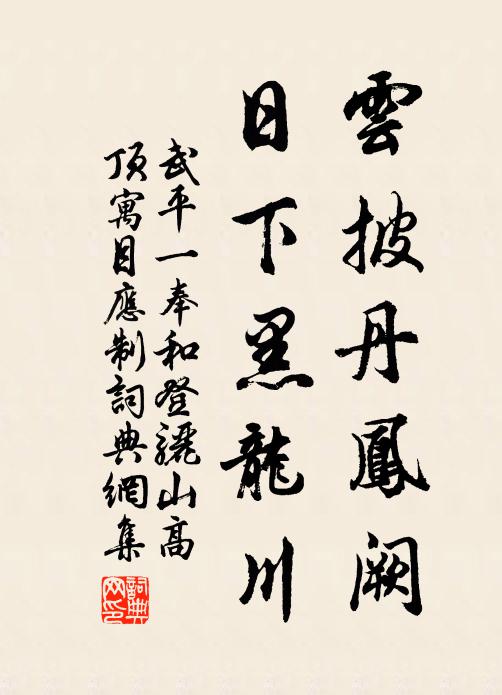 雲披丹鳳闕
日下黑龍川
武平一奉和登驪山高
頂寓目應制詞典網集
詞典網印